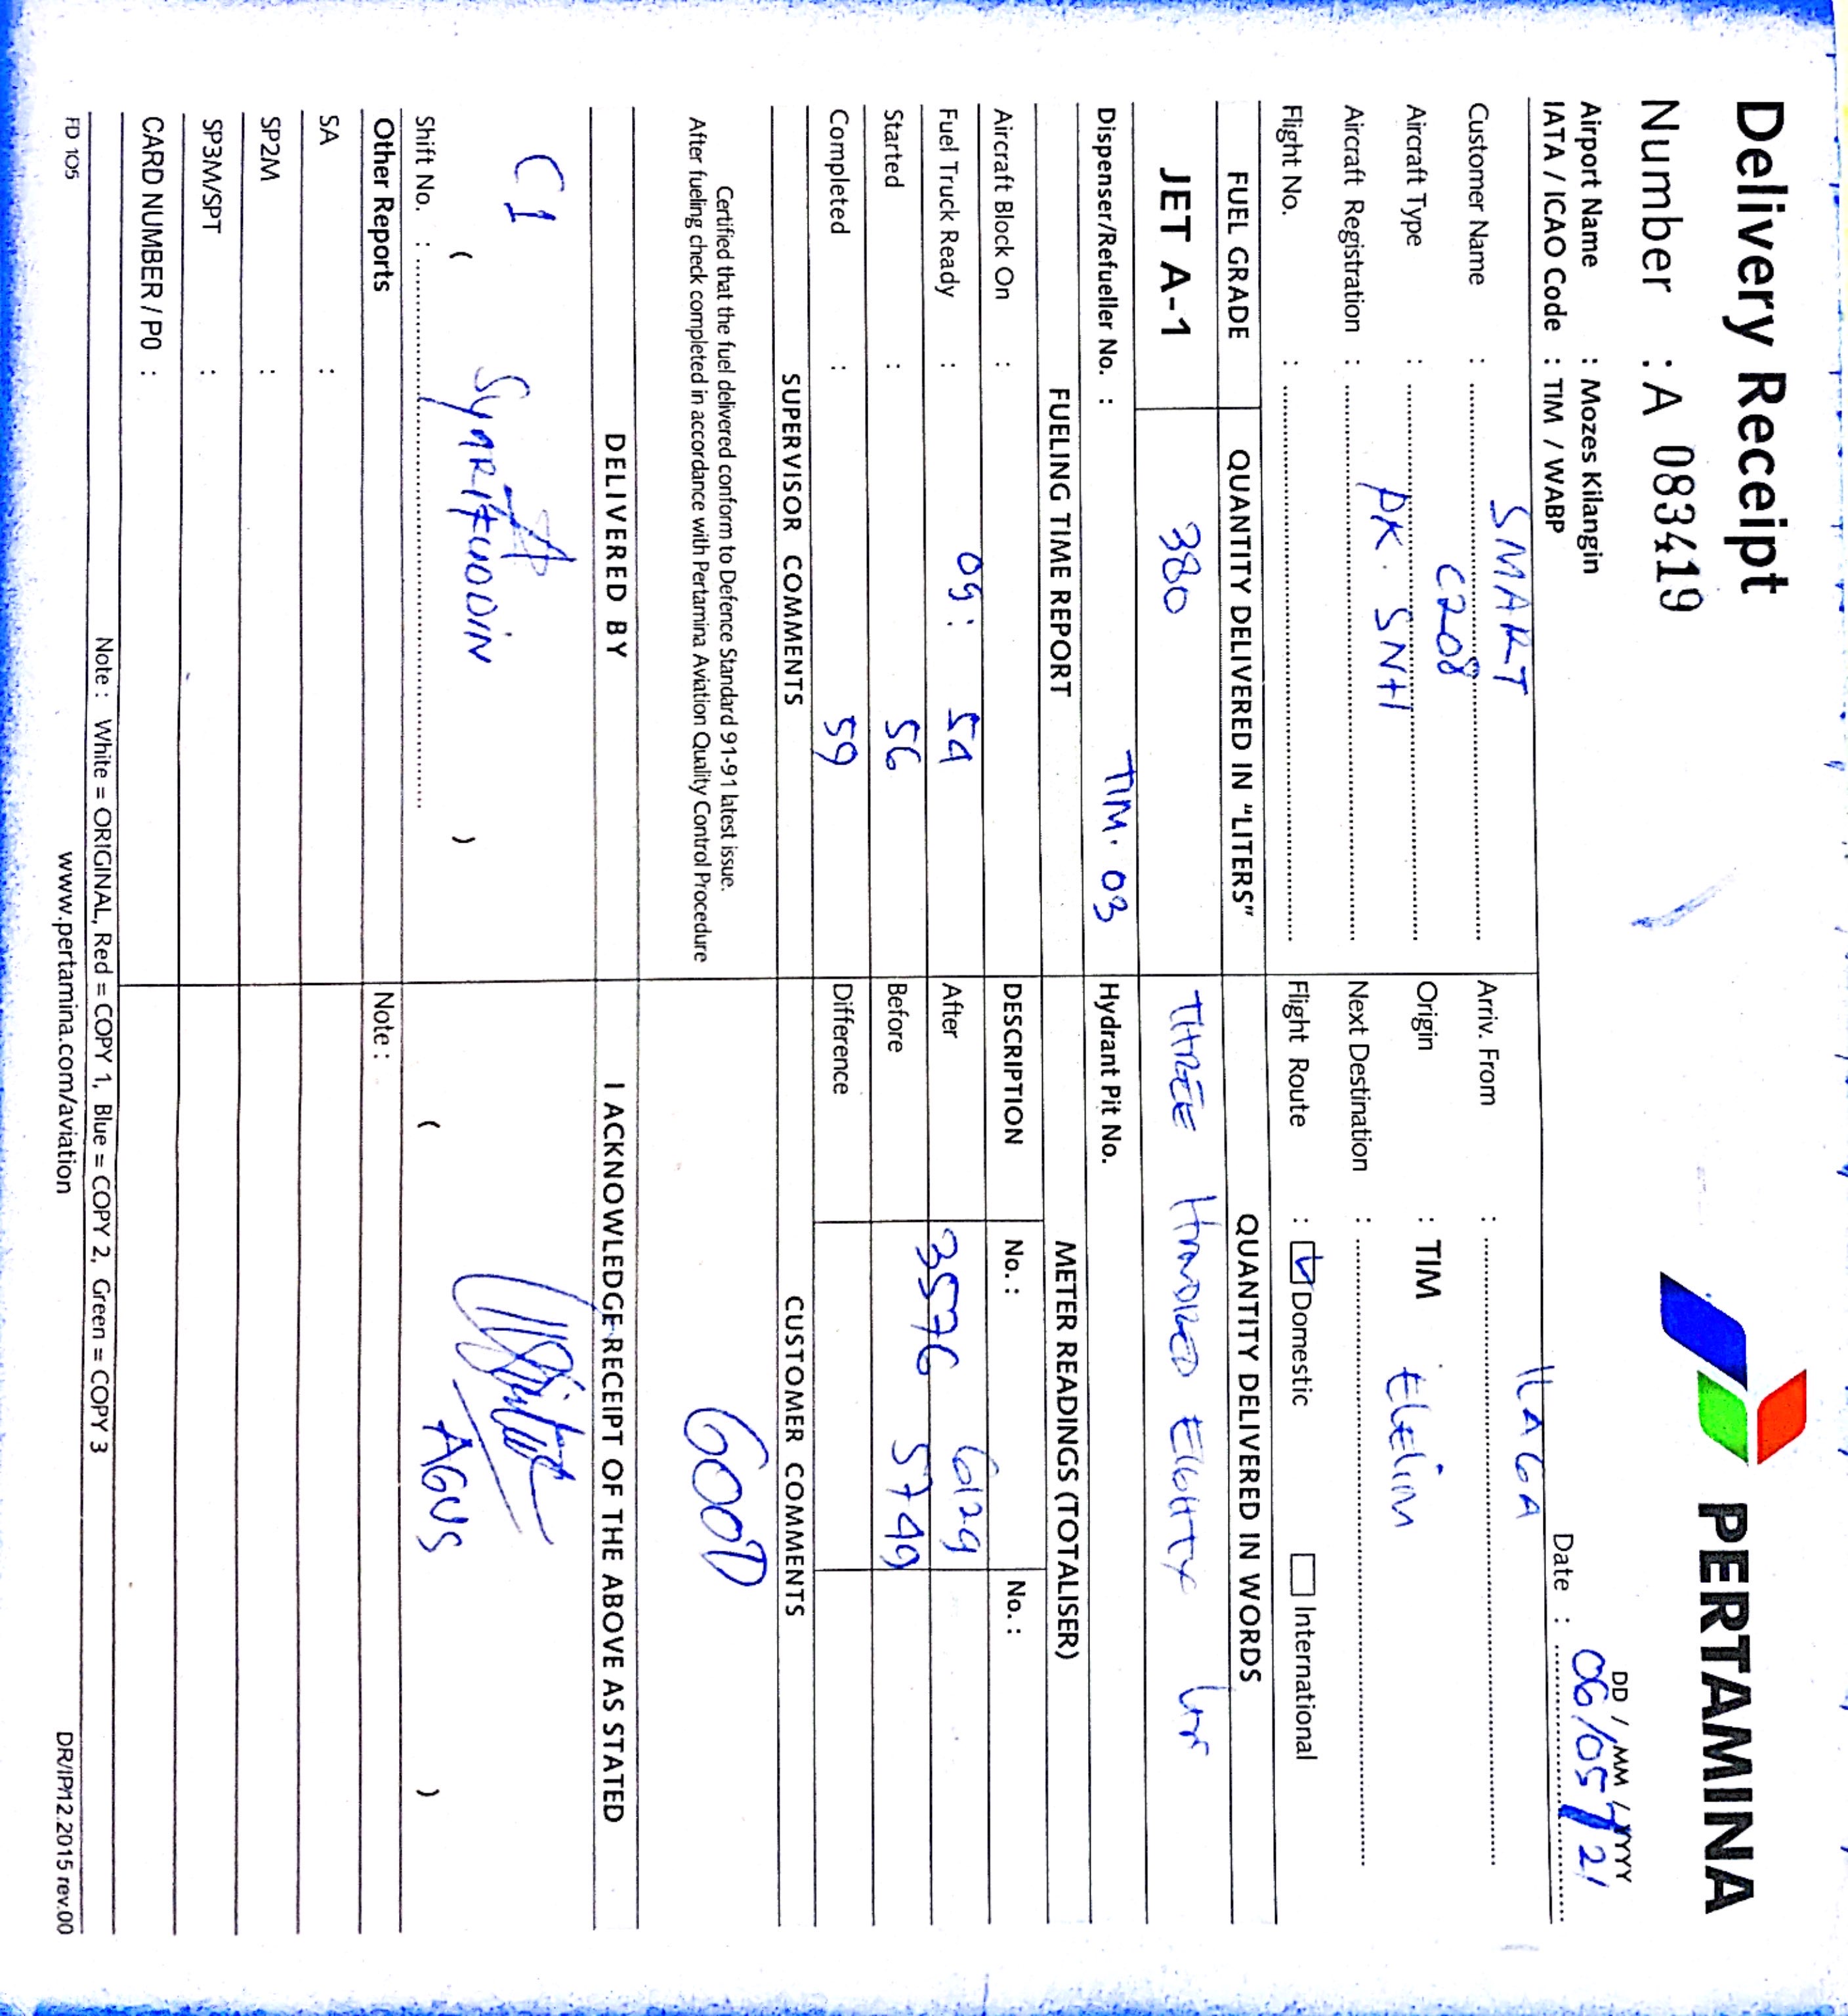 Delivery Receipt
PERTAMINA
Number : A 083419
DD / MM / YYYY
Airport Name : Mozes Kilangin
Date : 06/05/21
IATA / ICAO Code : TIM / WABP
Customer Name : SMART
Arriv. From : ILAGA
Aircraft Type : C208
Origin : TIM
Aircraft Registration : PK. SNH
Next Destination : ELELIM
Flight No. :
Flight Route : Domestic International
FUEL GRADE QUANTITY DELIVERED IN "LITERS" QUANTITY DELIVERED IN WORDS
JET A-1 380 THREE HUNDRED EIGHTY Ltr
Dispenser/Refueller No. : TIM. 03 Hydrant Pit No.
FUELING TIME REPORT METER READINGS (TOTALISER)
Aircraft Block On : DESCRIPTION No. : No. :
Fuel Truck Ready : 09 : 54 After 3576 6129
Started : 56 Before 5749
Completed : 59 Difference
SUPERVISOR COMMENTS CUSTOMER COMMENTS
Certified that the fuel delivered conform to Defence Standard 91-91 latest issue.
After fueling check completed in accordance with Pertamina Aviation Quality Control Procedure
GOOD
DELIVERED BY I ACKNOWLEDGE RECEIPT OF THE ABOVE AS STATED
C1
( SYARIFUDDIN )
( AGUS )
Shift No. :
Other Reports Note :
SA :
SP2M :
SP3M/SPT :
CARD NUMBER / PO :
Note : White = ORIGINAL, Red = COPY 1, Blue = COPY 2, Green = COPY 3
FD 105 www.pertamina.com/aviation DR/IP/12.2015 rev.00